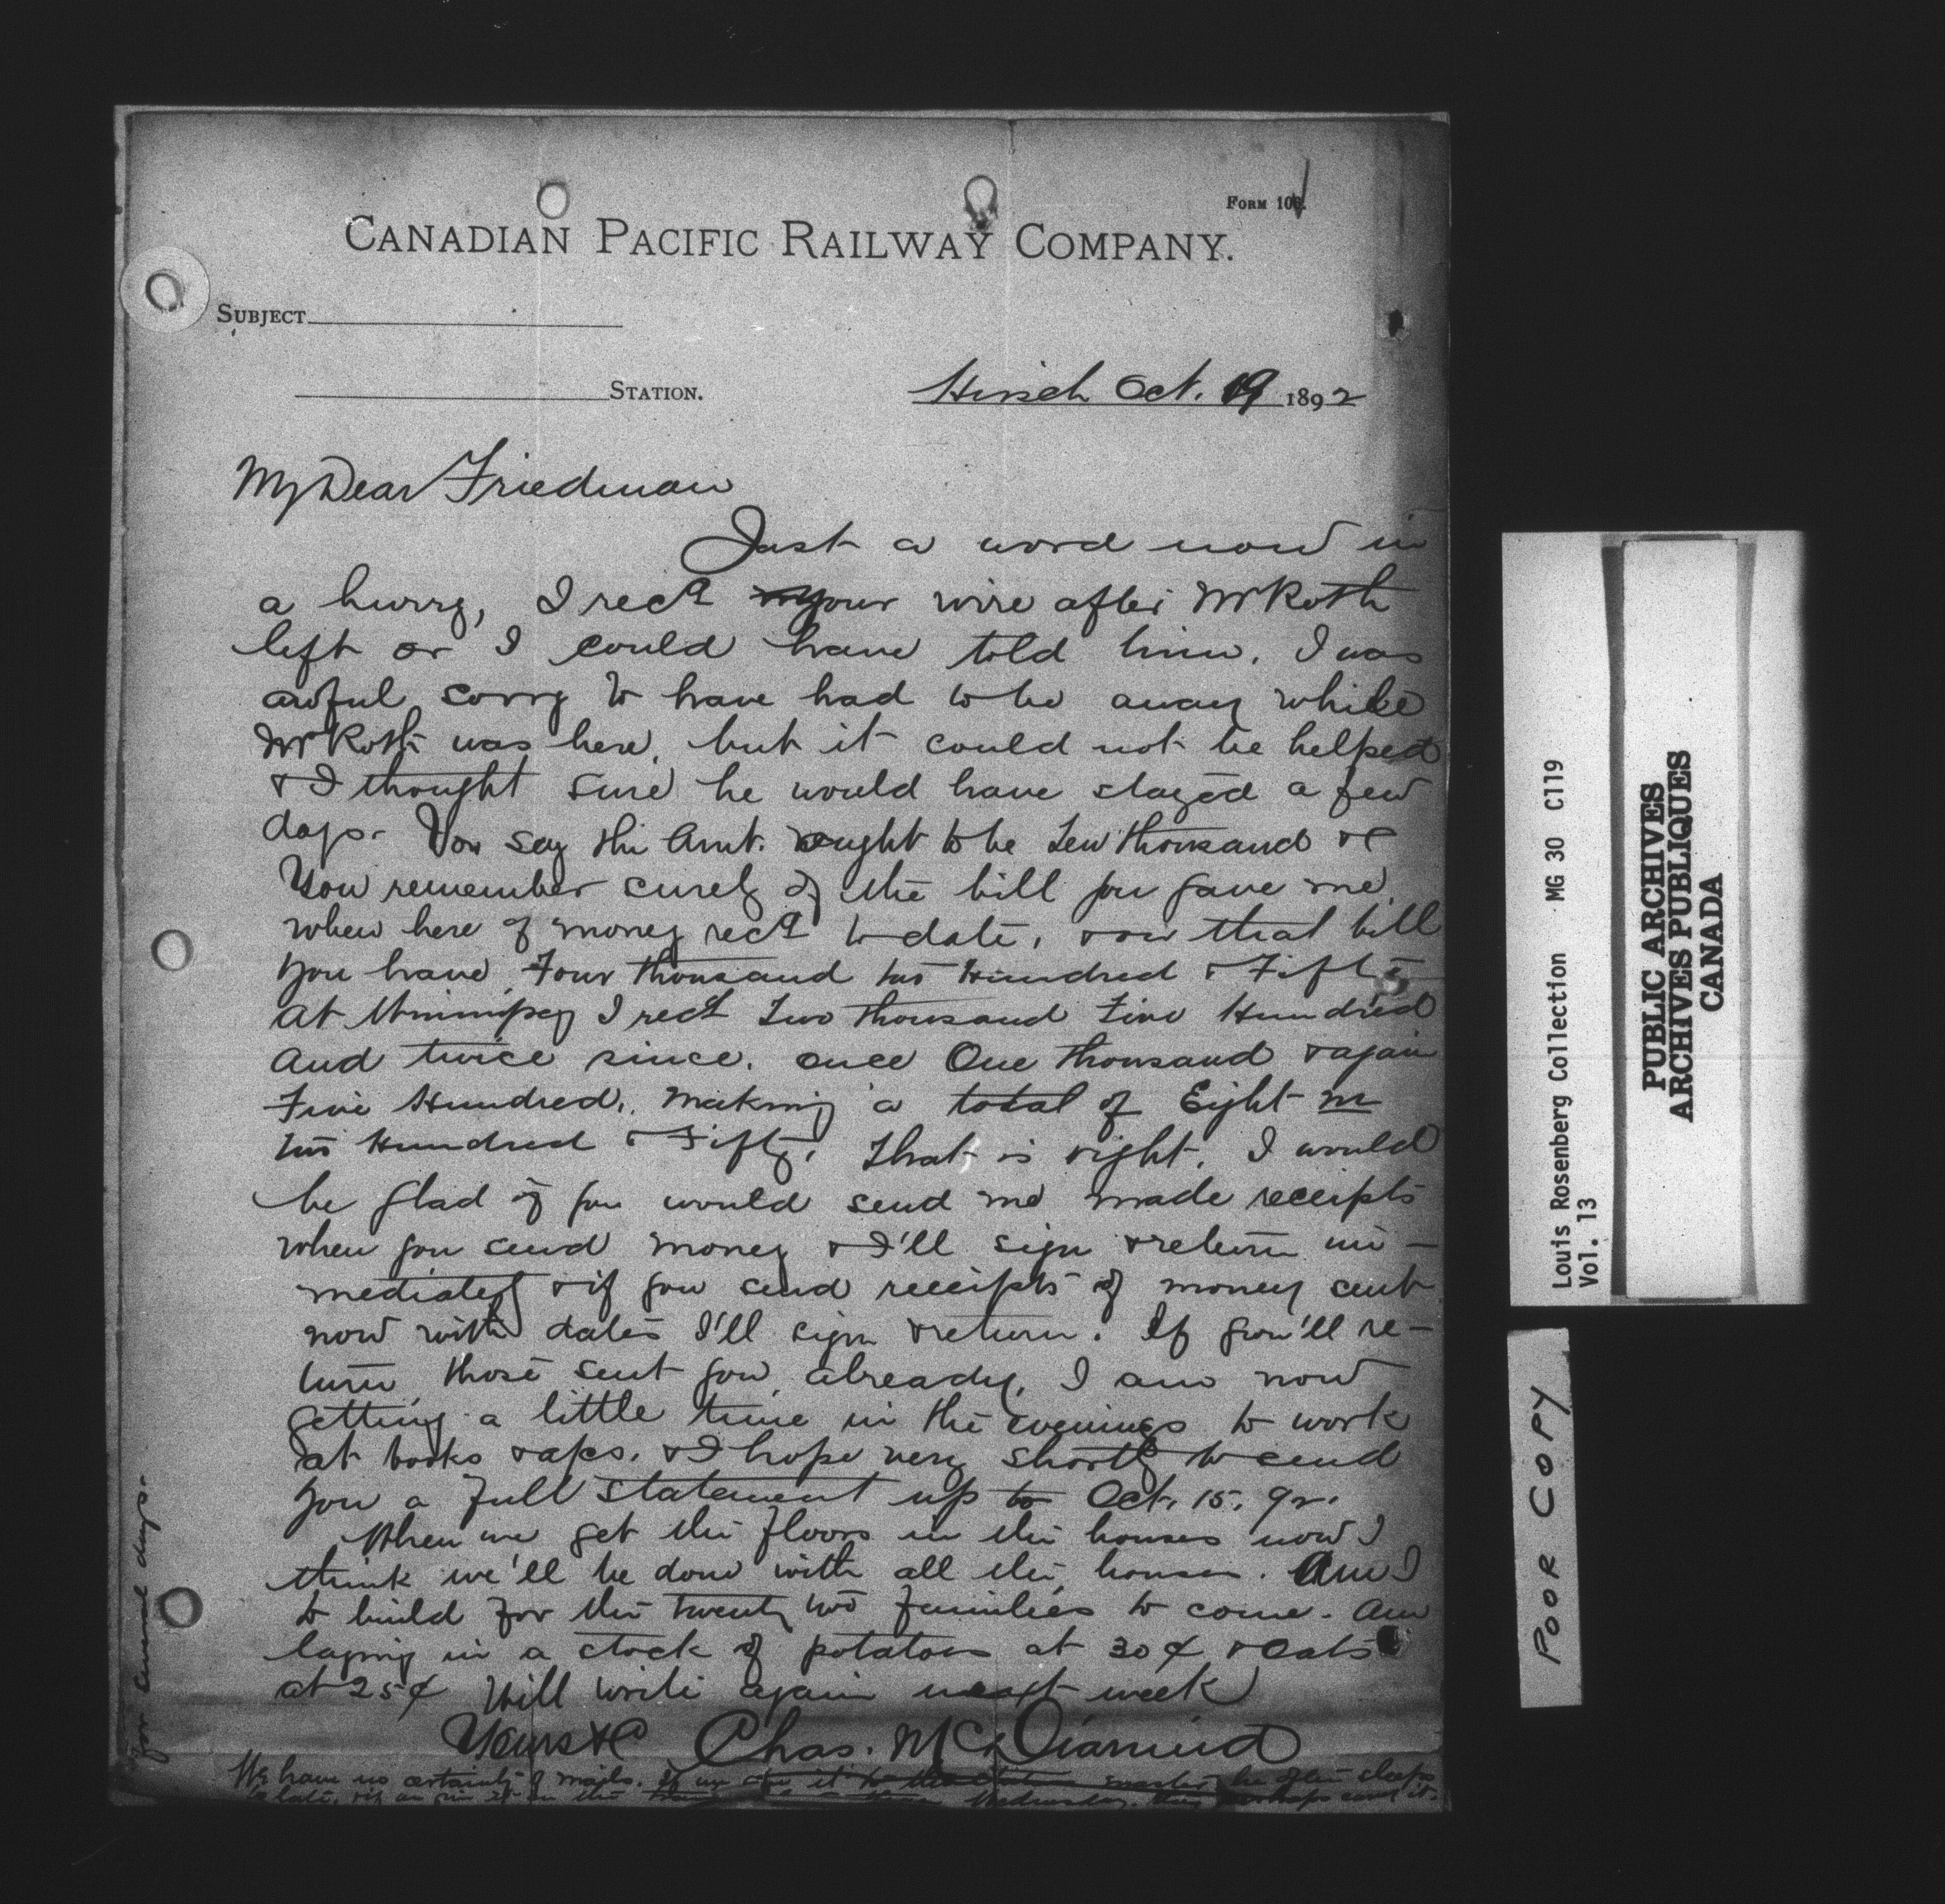 FORM 106.
CANADIAN PACIFIC RAILWAY COMPANY.
SUBJECT
STATION.
Hirsch Oct. 19 1892
My Dear Friedman
Just a word now in
a hurry, I recd your wire after Mr Roth
left or I could have told him. I was
awful sorry to have had to be away while
Mr Roth was here, but it could not be helped
& I thought sure he would have stayed a few
days. You say the Amt. ought to be Ten thousand &c
You remember surely of the bill you gave me
when here of money recd to date, & on that bill
you have Four thousand two Hundred & Fifty
at Winnipeg I recd Two thousand Five Hundred
and twice since. once One thousand & again
Five Hundred, making a total of Eight m
two Hundred & Fifty. that is right. I would
be glad if you would send me made receipts
when you send money & I'll sign & return im-
mediately & if you send receipts of money sent
now with dates I'll sign & return. If you'll re-
turn those sent you already, I am now
getting a little time in the evenings to work
at books & a/cs. & I hope very shortly to send
you a full statement up to Oct. 15. 92.
When we get the floors in the houses now I
think we'll be done with all the houses. Am I
to build for the twenty two families to come. Am
laying in a stock of potatoes at 30¢ & Oats
at 25¢ Will write again next week
Yours &c Chas. McDiarmid
We have no certainty of mails. If we he often sleeps
late, & if we Wednesday.
for several days.
Louis Rosenberg Collection MG 30 C119
Vol. 13
PUBLIC ARCHIVES
ARCHIVES PUBLIQUES
CANADA
POOR COPY